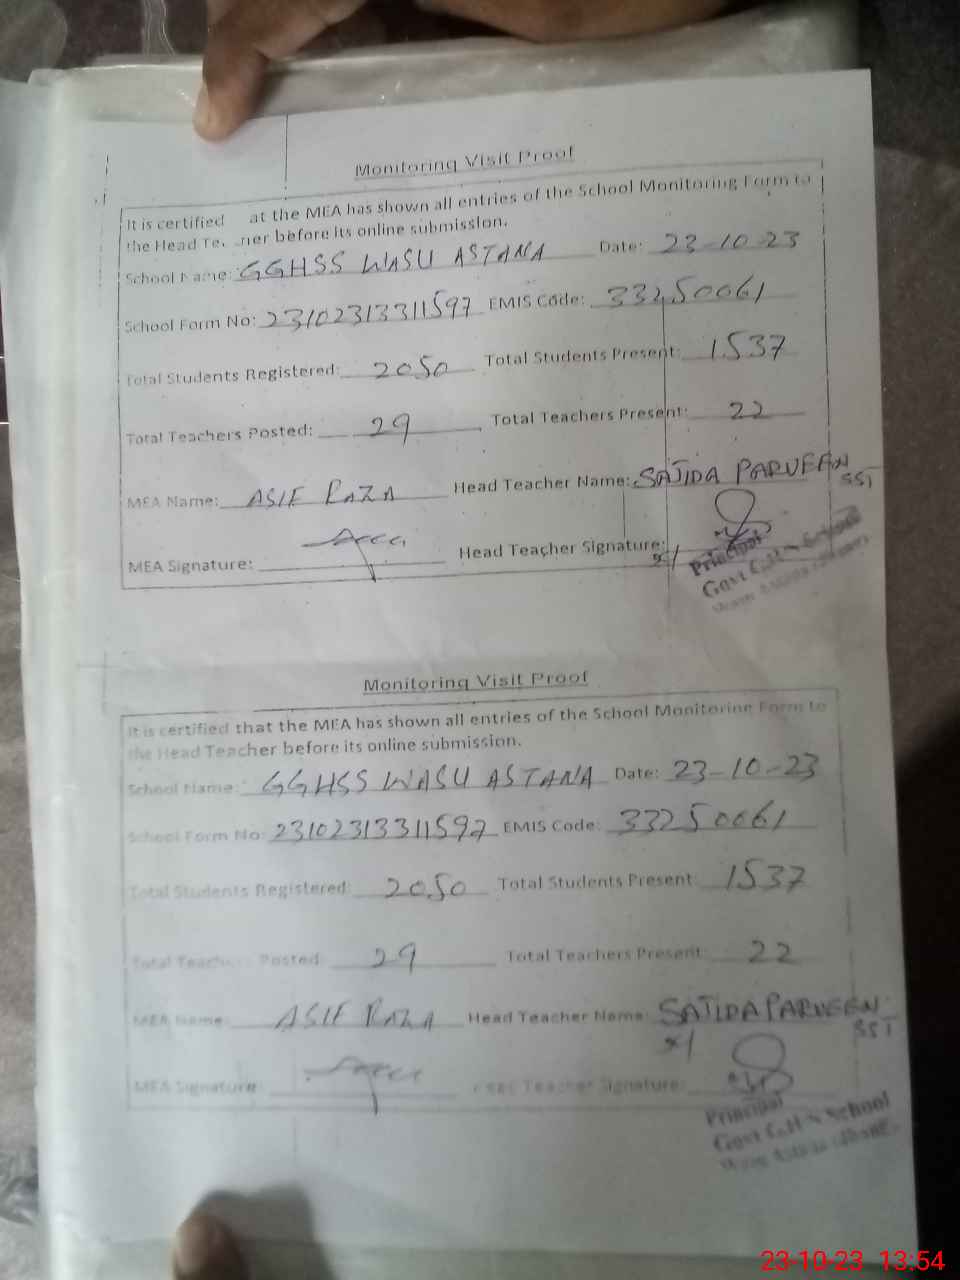 Monitoring Visit Proof
It is certified at the MEA has shown all entries of the School Monitoring Form to
the Head Te. ner before its online submission.
School Name: GGHSS WASU ASTANA Date: 23-10-23
School Form No: 23102313311597 EMIS Code: 33250061
Total Students Registered: 2050 Total Students Present: 1537
Total Teachers Posted: 29 Total Teachers Present: 22
MEA Name: ASIF RAZA Head Teacher Name: SAJIDA PARVEEN
SST
MEA Signature: Head Teacher Signature:
Principal
Govt G.H S School
Monitoring Visit Proof
It is certified that the MEA has shown all entries of the School Monitoring Form to
the Head Teacher before its online submission.
School Name: GGHSS WASU ASTANA Date: 23-10-23
School Form No: 23102313311597 EMIS Code: 33250061
Total Students Registered: 2050 Total Students Present: 1537
Total Teachers Posted: 29 Total Teachers Present: 22
MEA Name: ASIF RAZA Head Teacher Name: SAJIDA PARVEEN
SST
MEA Signature: Teacher Signature:
Principal
Govt G.H S School
23-10-23 13:54